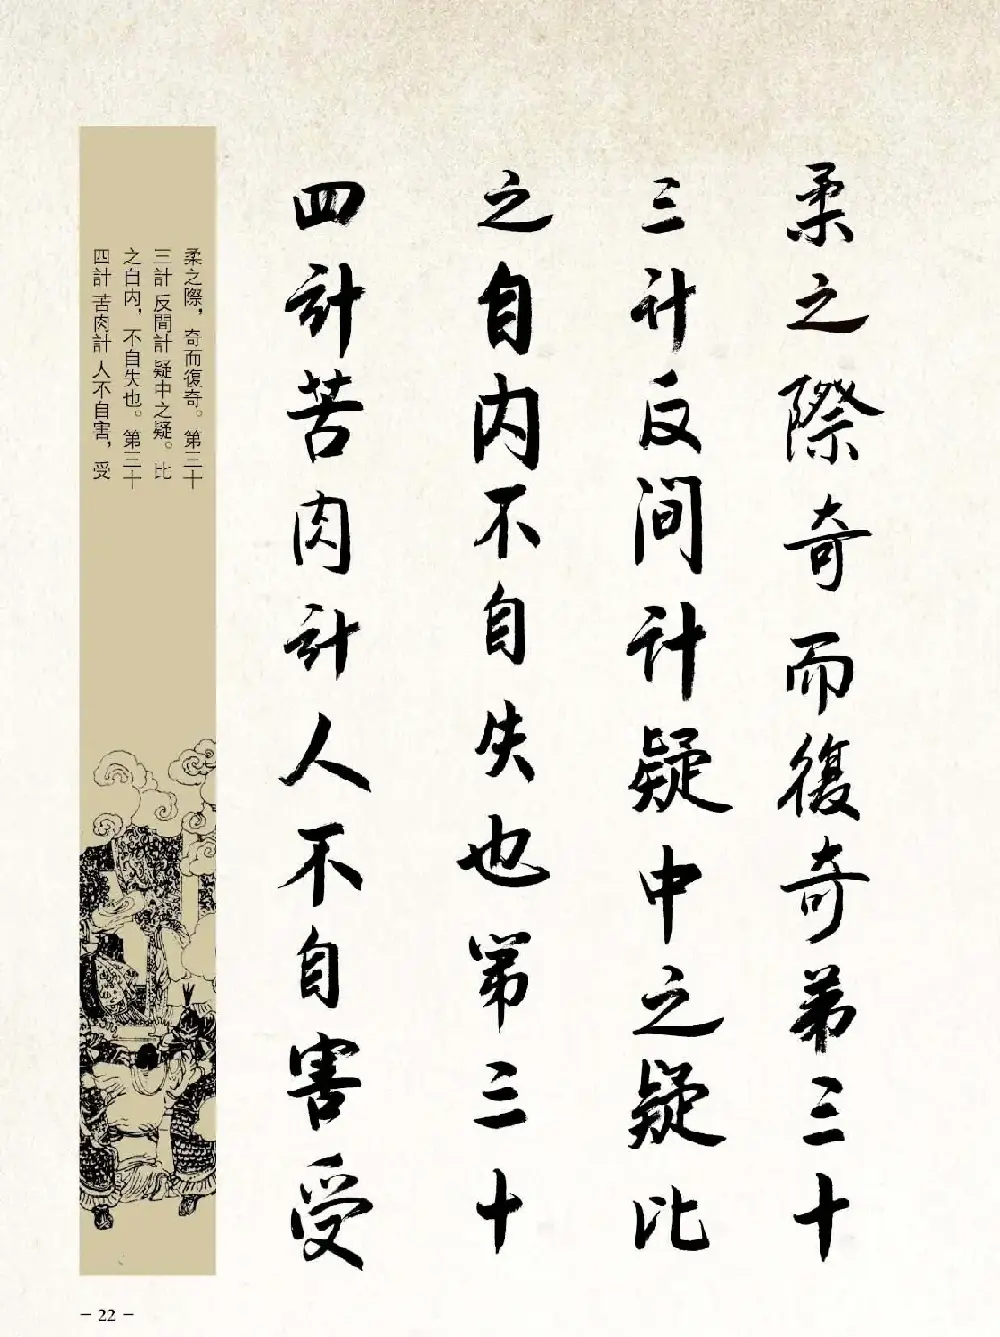 柔之際奇而復奇第三十
三计反间计疑中之疑比
之自内不自失也第三十
四計苦肉計人不自害受
柔之際，奇而復奇。第三十
三計 反間計 疑中之疑。比
之自内，不自失也。第三十
四計 苦肉計 人不自害，受
– 22 –